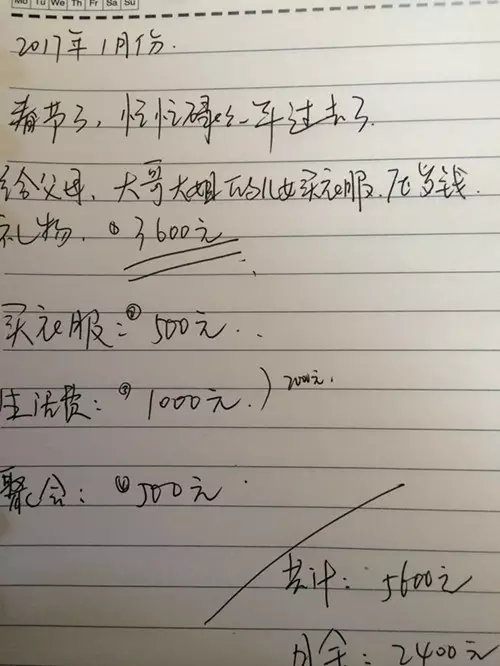 Mo Tu We Th Fr Sa Su
2017年1月份.
春节了,忙忙碌碌一年过去了.
给父母、大哥大姐的儿女买衣服.压岁钱.
礼物、①3600元
买衣服:②500元..
生活费:③1000元.)2000元.
聚会:④500元
共计:5600元
2400元